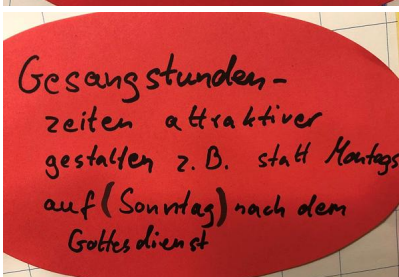 Gesangstunden-
zeiten attraktiver
gestalten z.B. statt Montags
auf (Sonntag) nach dem
Gottesdienst